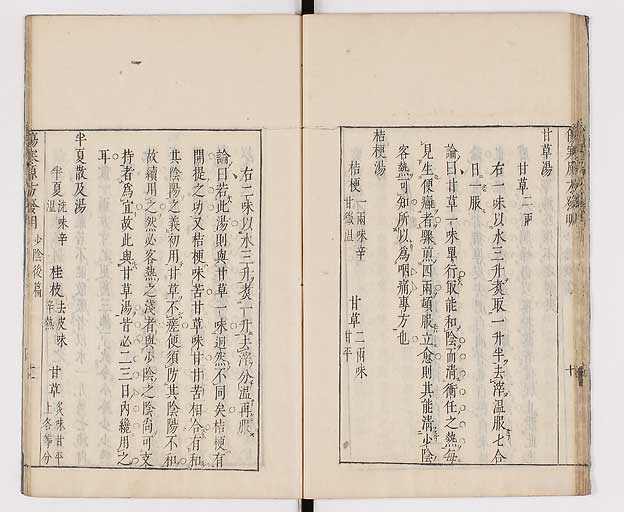 甘草湯
甘草二兩
右一味以水三升煑取一升半去滓温服七合
日一服
論曰甘草一味單行取能和陰而清衝任之熱每
見生便癰者驟煎四兩頓服立愈則其能清少陰
客熱可知所以為咽痛專方也
桔梗湯
桔梗 一兩味辛甘微温 甘草 二兩味甘平
右二味以水三升煑一升去滓分温再服
論曰若此湯則與甘草一味迥然不同矣桔梗有
開提之功又桔梗味苦甘草味甘甘苦相合有和
共陰陽之義初用甘草不瘥便須防其陰陽不和
故續用之然必客熱之淺者與少陰之陰尚可支
持者為宜故此與甘草湯皆必二三日内纔用之
耳
半夏散及湯
半夏 洗味辛温 桂枝 去皮味辛熱 甘草 炙味甘平上各等分
傷寒原方發明 少陰後篇